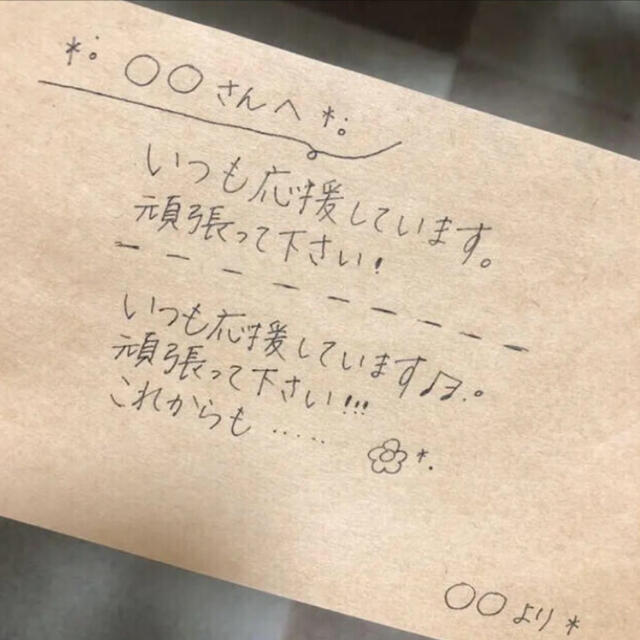 *:。〇〇さんへ*:。
いつも応援しています。
頑張って下さい!
いつも応援しています♪♫.。
頑張って下さい!!!
これからも……
〇〇より*